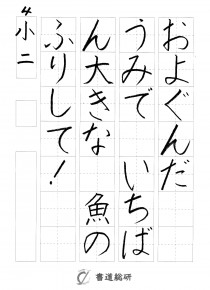 およぐんだ
うみで いちば
ん大きな 魚の
ふりして！
小二
書道総研